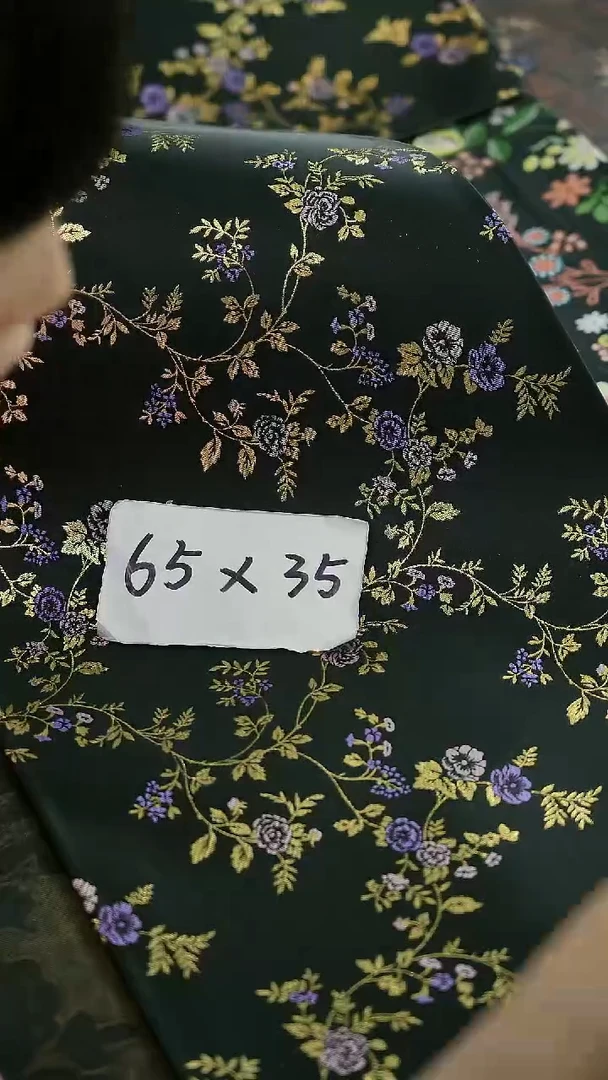 65 x 35